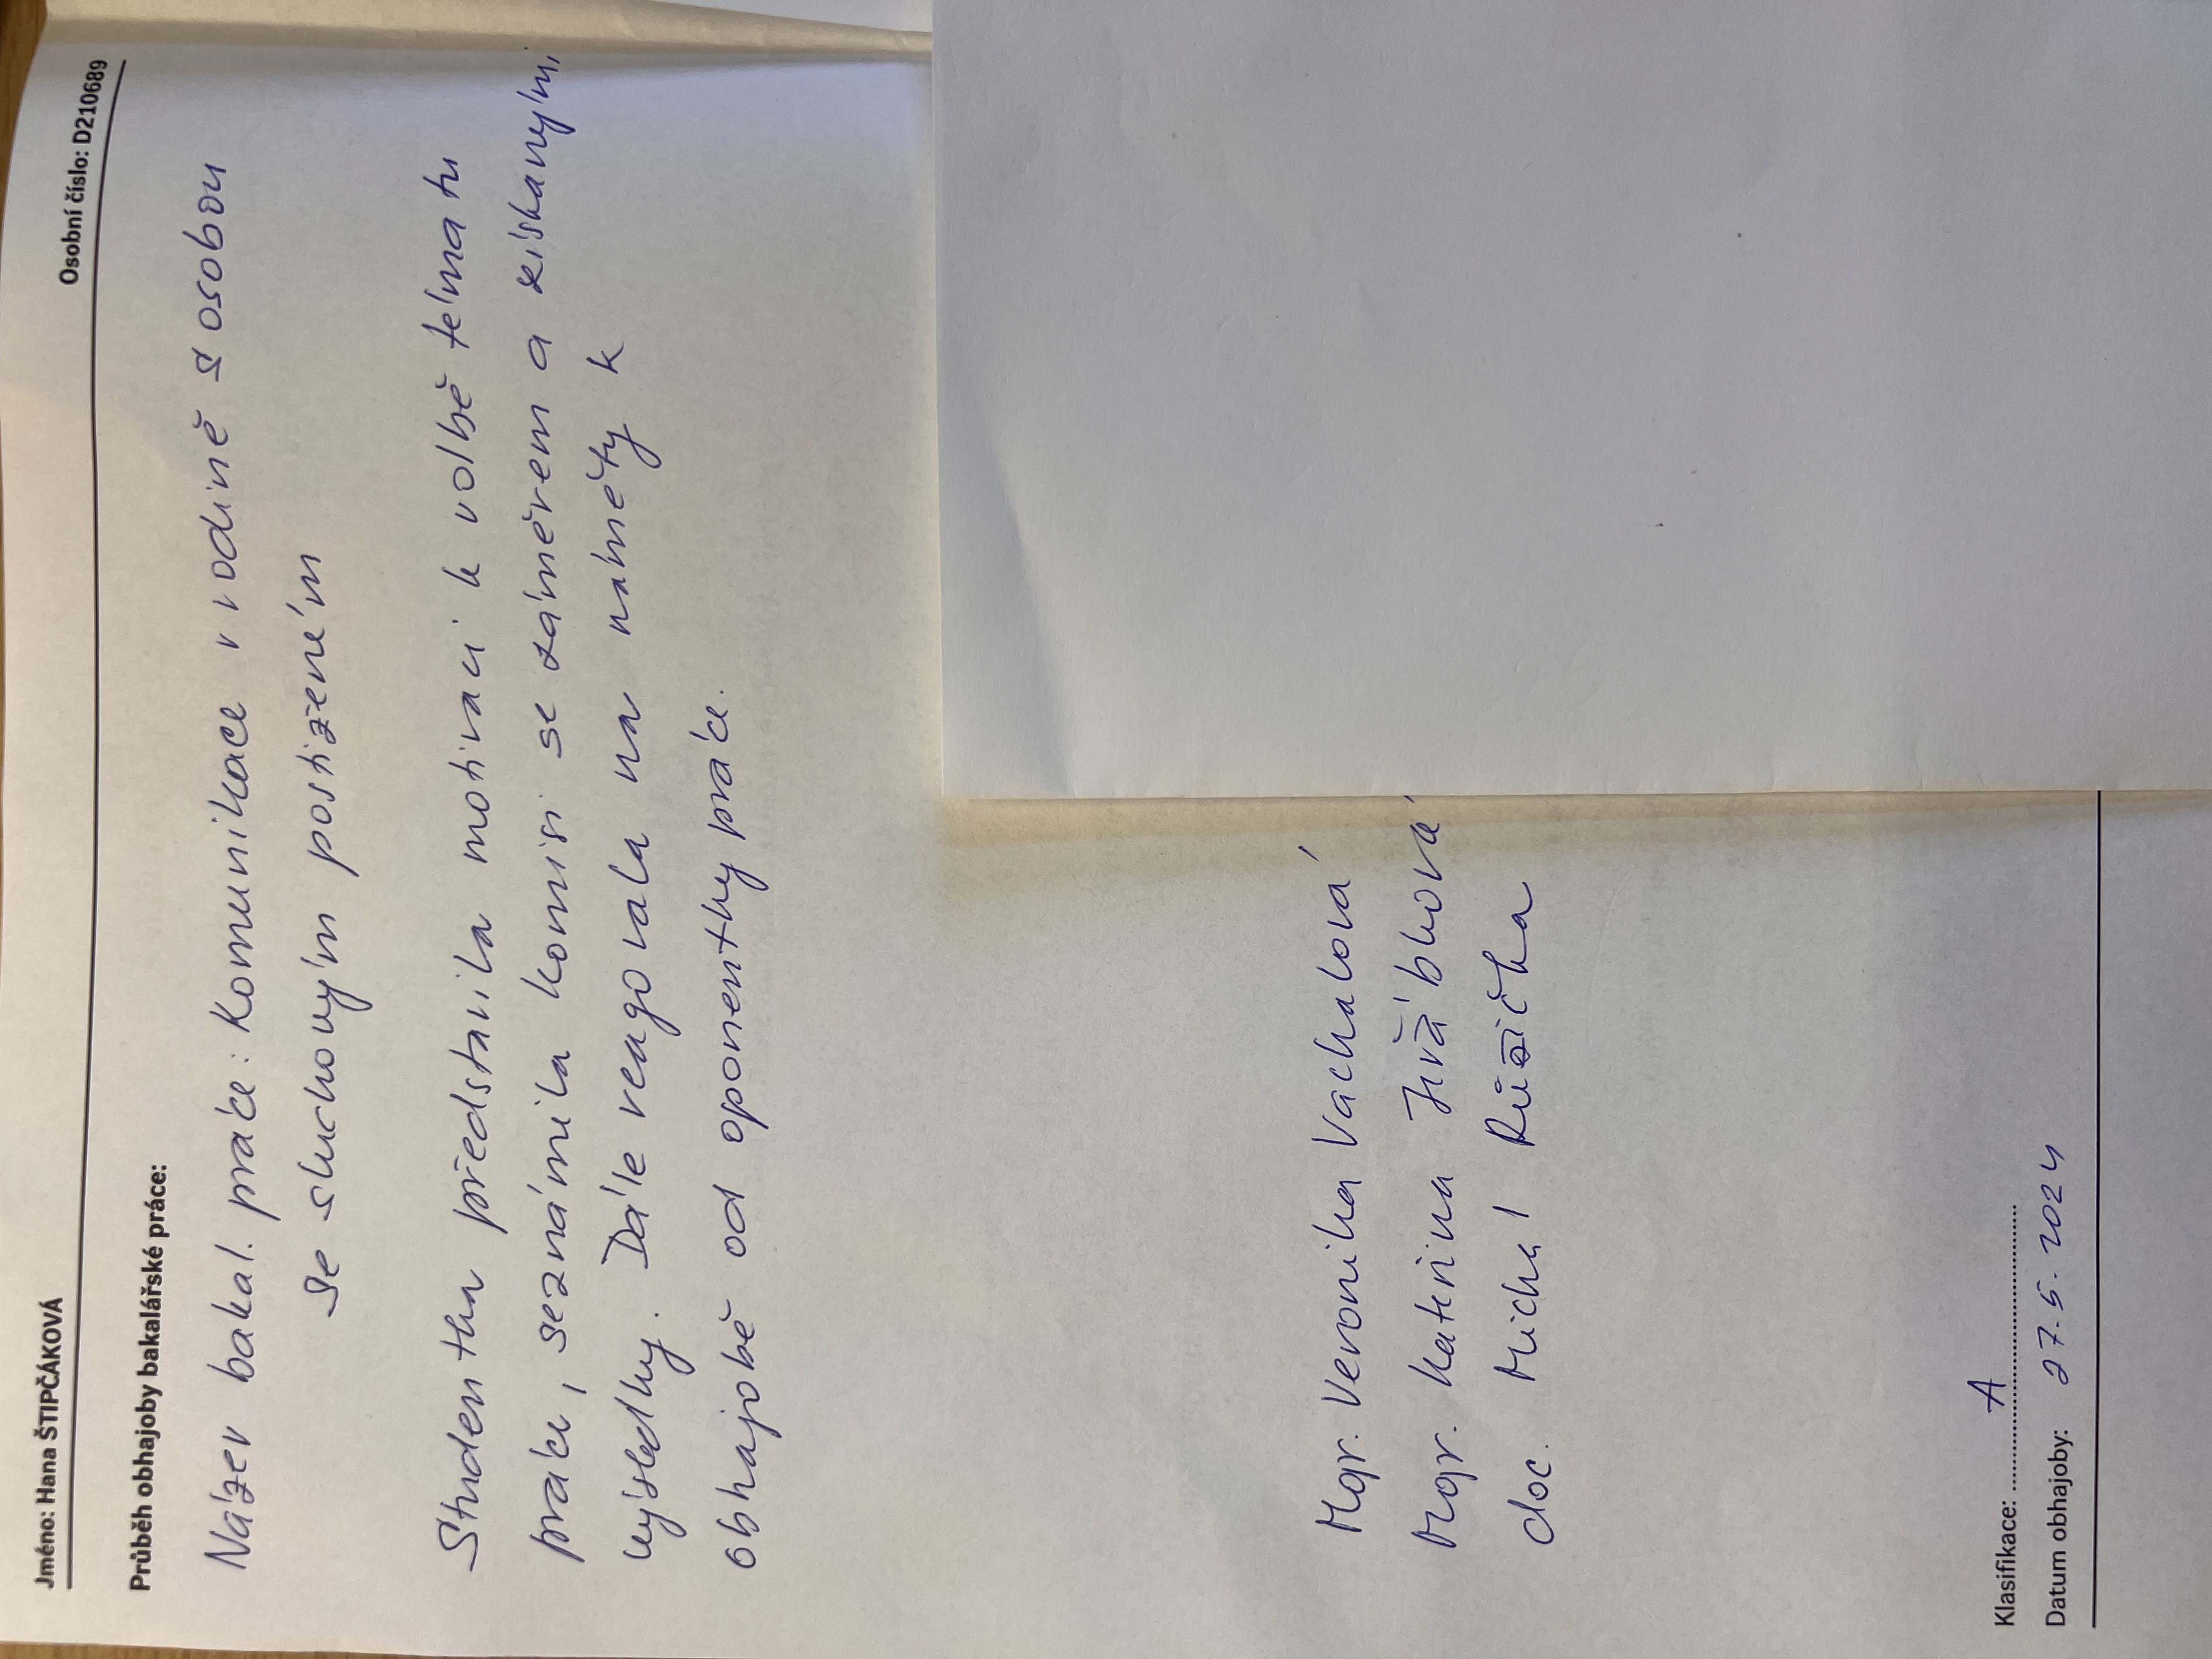 Jméno: Hana ŠTIPČÁKOVÁ Osobní číslo: D210689
Průběh obhajoby bakalářské práce:
Název bakal. práce: Komunikace v rodině s osobou
se sluchovým postižením
Studentka představila motivaci k volbě tématu
práce, seznámila komisi se záměrem a získanými
výsledky. Dále reagovala na náměty k
obhajobě od oponentky práce.
Mgr. Veronika Vachalová
Mgr. Kateřina Jeřábková
doc. Michal Růžička
Klasifikace: A
Datum obhajoby: 27.5.2024